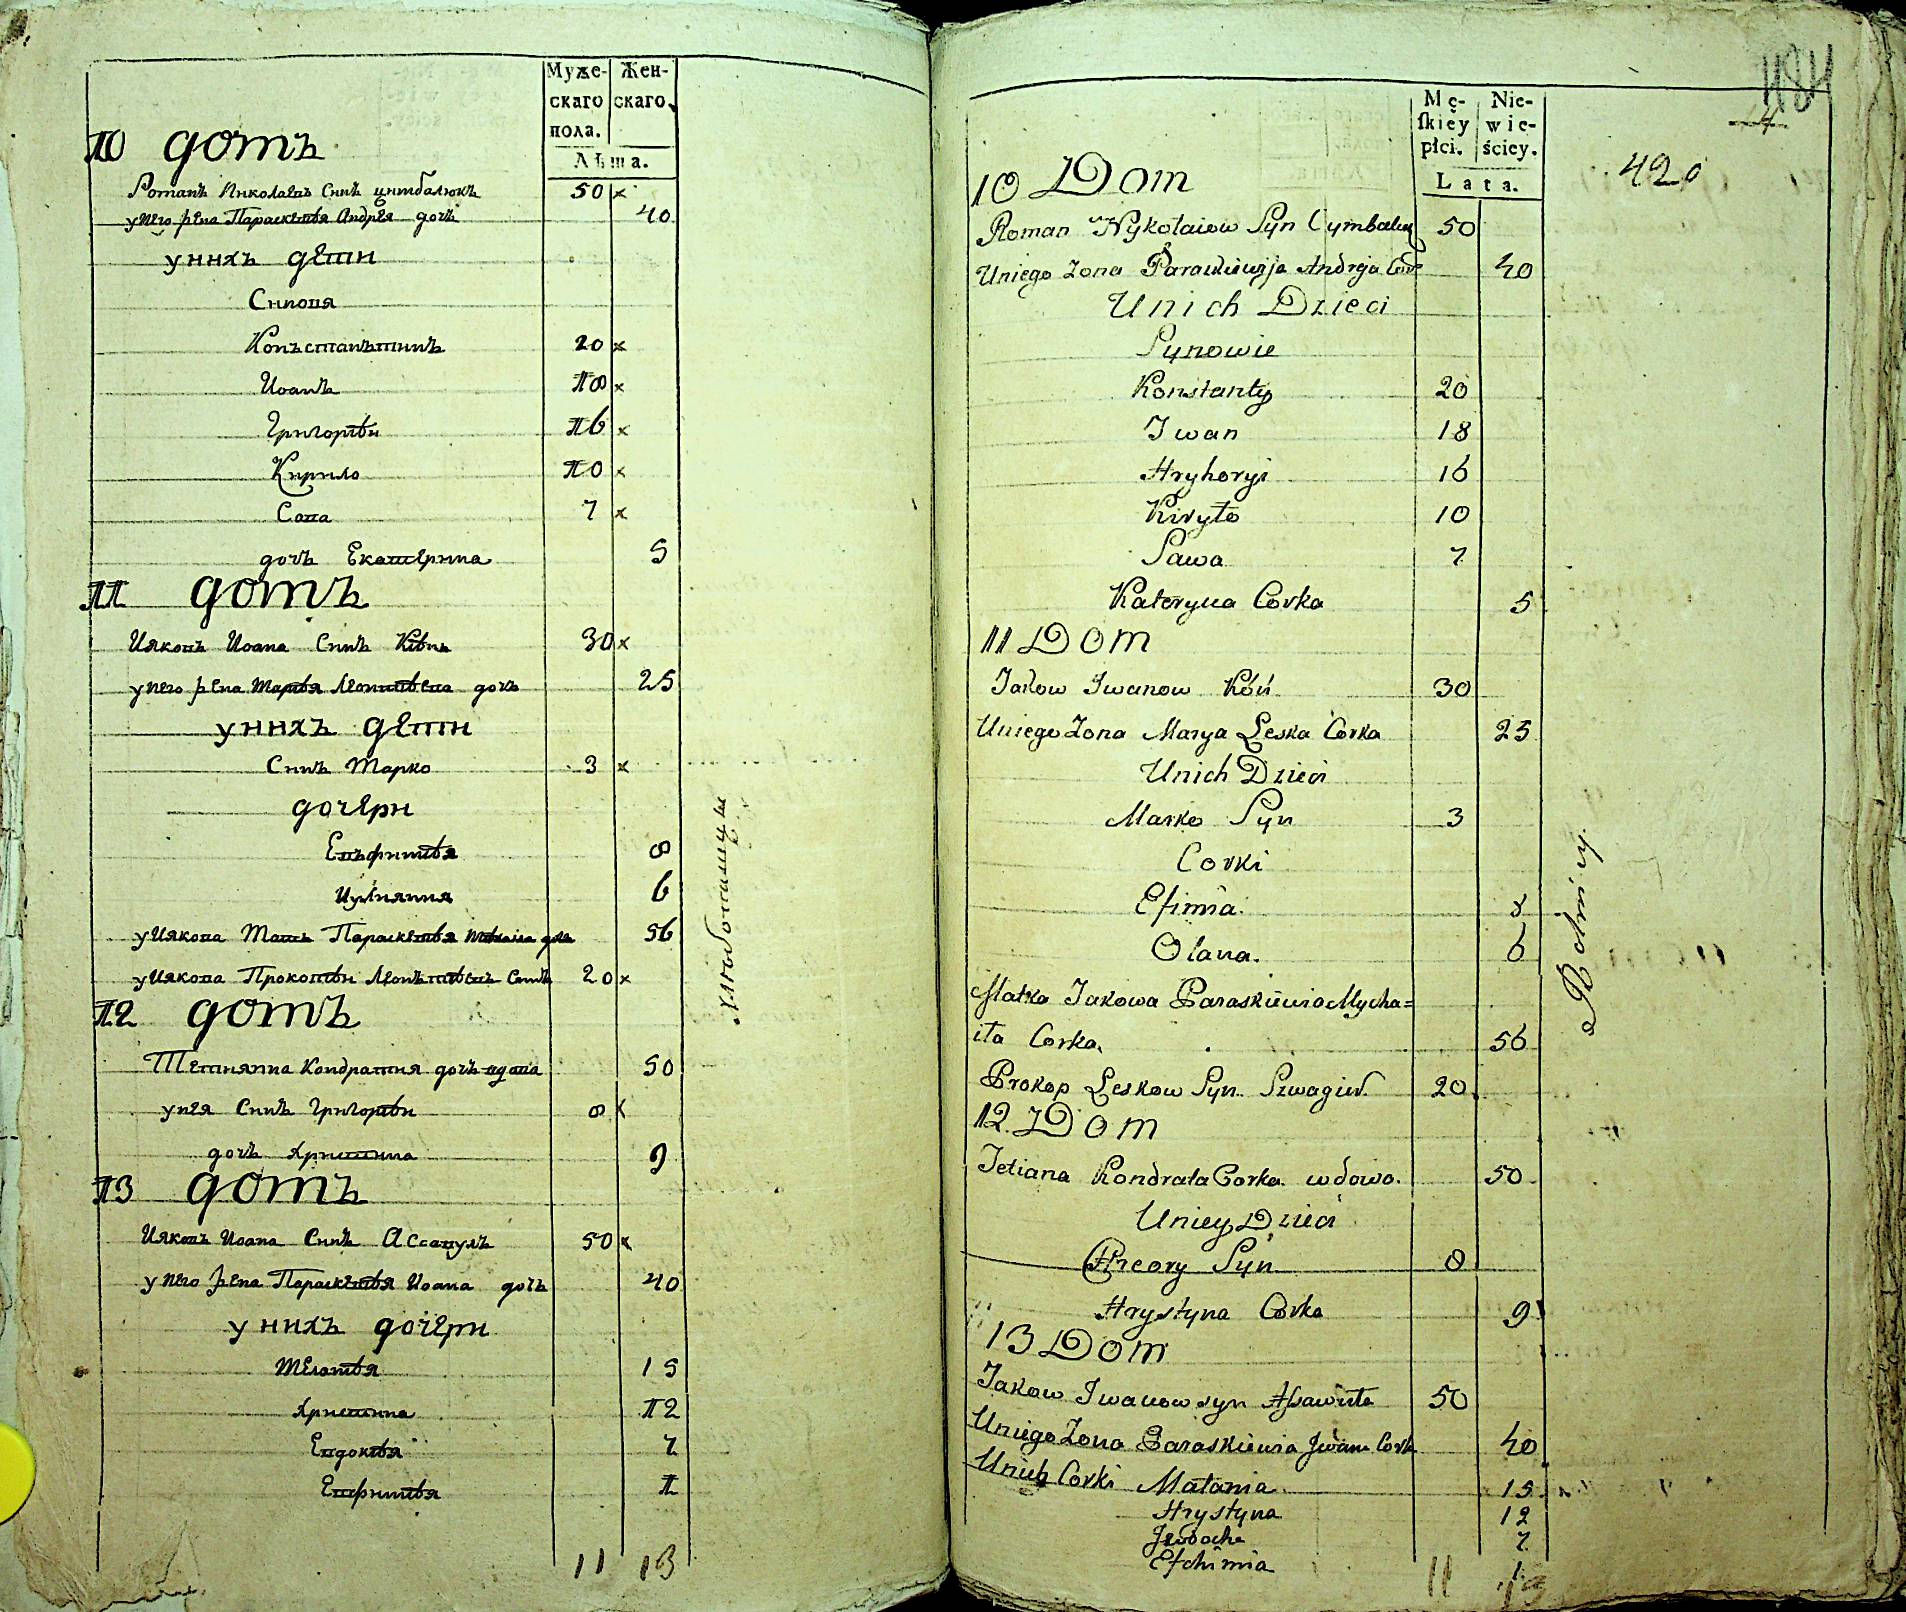 Муже-
скаго
пола.
Жен-
скаго.
Лѣта.
10 домъ
Романъ Николаевъ Синъ Цимбалюкъ 50 x
у него жена Параскевія Андрея дочъ 40
у нихъ дети
Синовя
Конъстанътинъ 20 x
Иоанъ 18 x
Григорій 16 x
Кирило 10 x
Сава 7 x
дочъ Екатерина 5
11 домъ
Ияковъ Иоана Синъ Кѣнь 30 x
у него жена Марія дочъ 25
у нихъ дети
Синъ Марко 3 x
дочери
Евъфимія 8
Иулияния 6
у Иякова Мать Параскевія Михаила дочъ 56
у Иякова Прокопій 20 x
12 домъ
Тетиянна Кондратия дочъ вдова 50
у нея Синъ Григорій 8 x
дочъ Христина 9
13 домъ
Ияковъ Иоана Синъ Ассавулъ 50 x
у него жена Параскевія Иоана дочъ 40
у нихъ дочери
Меланія 15
Христина 12
Евдокія 7
Евфимія 1
11 13
Хлѣбопашцы
484
4
420
Mę-
skiey
płci.
Nie-
wie-
ściey.
Lata.
10 Dom
Roman Nykołaiow Syn Cymbaluk 50
Uniego Zona Paraskiewija Andreja Cor 40
Unich Dzieci
Synowie
Konstanty 20
Iwan 18
Hryhoryi 16
Kiryło 10
Sawa 7
Kateryna Corka 5
11 Dom
Jakow Iwanow Kóń 30
Uniego Zona Marya Leska Corka 25
Unich Dzieci
Marko Syn 3
Corki
Efimia. 8
Olana. 6
Matka Jakowa Paraskiewia Mycha=
iła Corka. 56
Prokop Leskow Syn. Szwagier. 20
12 Dom
Tetiana Kondrata Corka. wdowa. 50
Uniey Dzieci
Hreory Syn 8
Hrystyna Corka 9
13 Dom
Jakow Iwanow syn Assawuła 50
Uniego Zona Paraskiewia Iwana Corka 40
Unich Corki Małania 15
Hrystyna 12
Jewdocha 7
Efchimia 1
11 13
Rolnicy